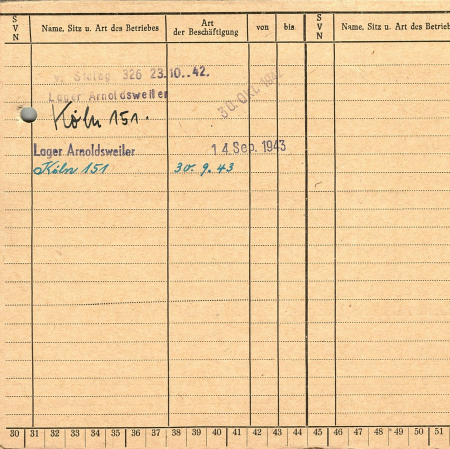 S V N Name, Sitz u. Art des Betriebes Art der Beschäftigung von bis S V N Name, Sitz u. Art des Betriebes
v. Stalag 326 23.10..42.
Lager Arnoldsweiler
30. Okt. 1942
Köln 151.
Lager Arnoldsweiler 14. Sep. 1943
Köln 151 30. 9. 43
30 31 32 33 34 35 36 37 38 39 40 41 42 43 44 45 46 47 48 49 50 51